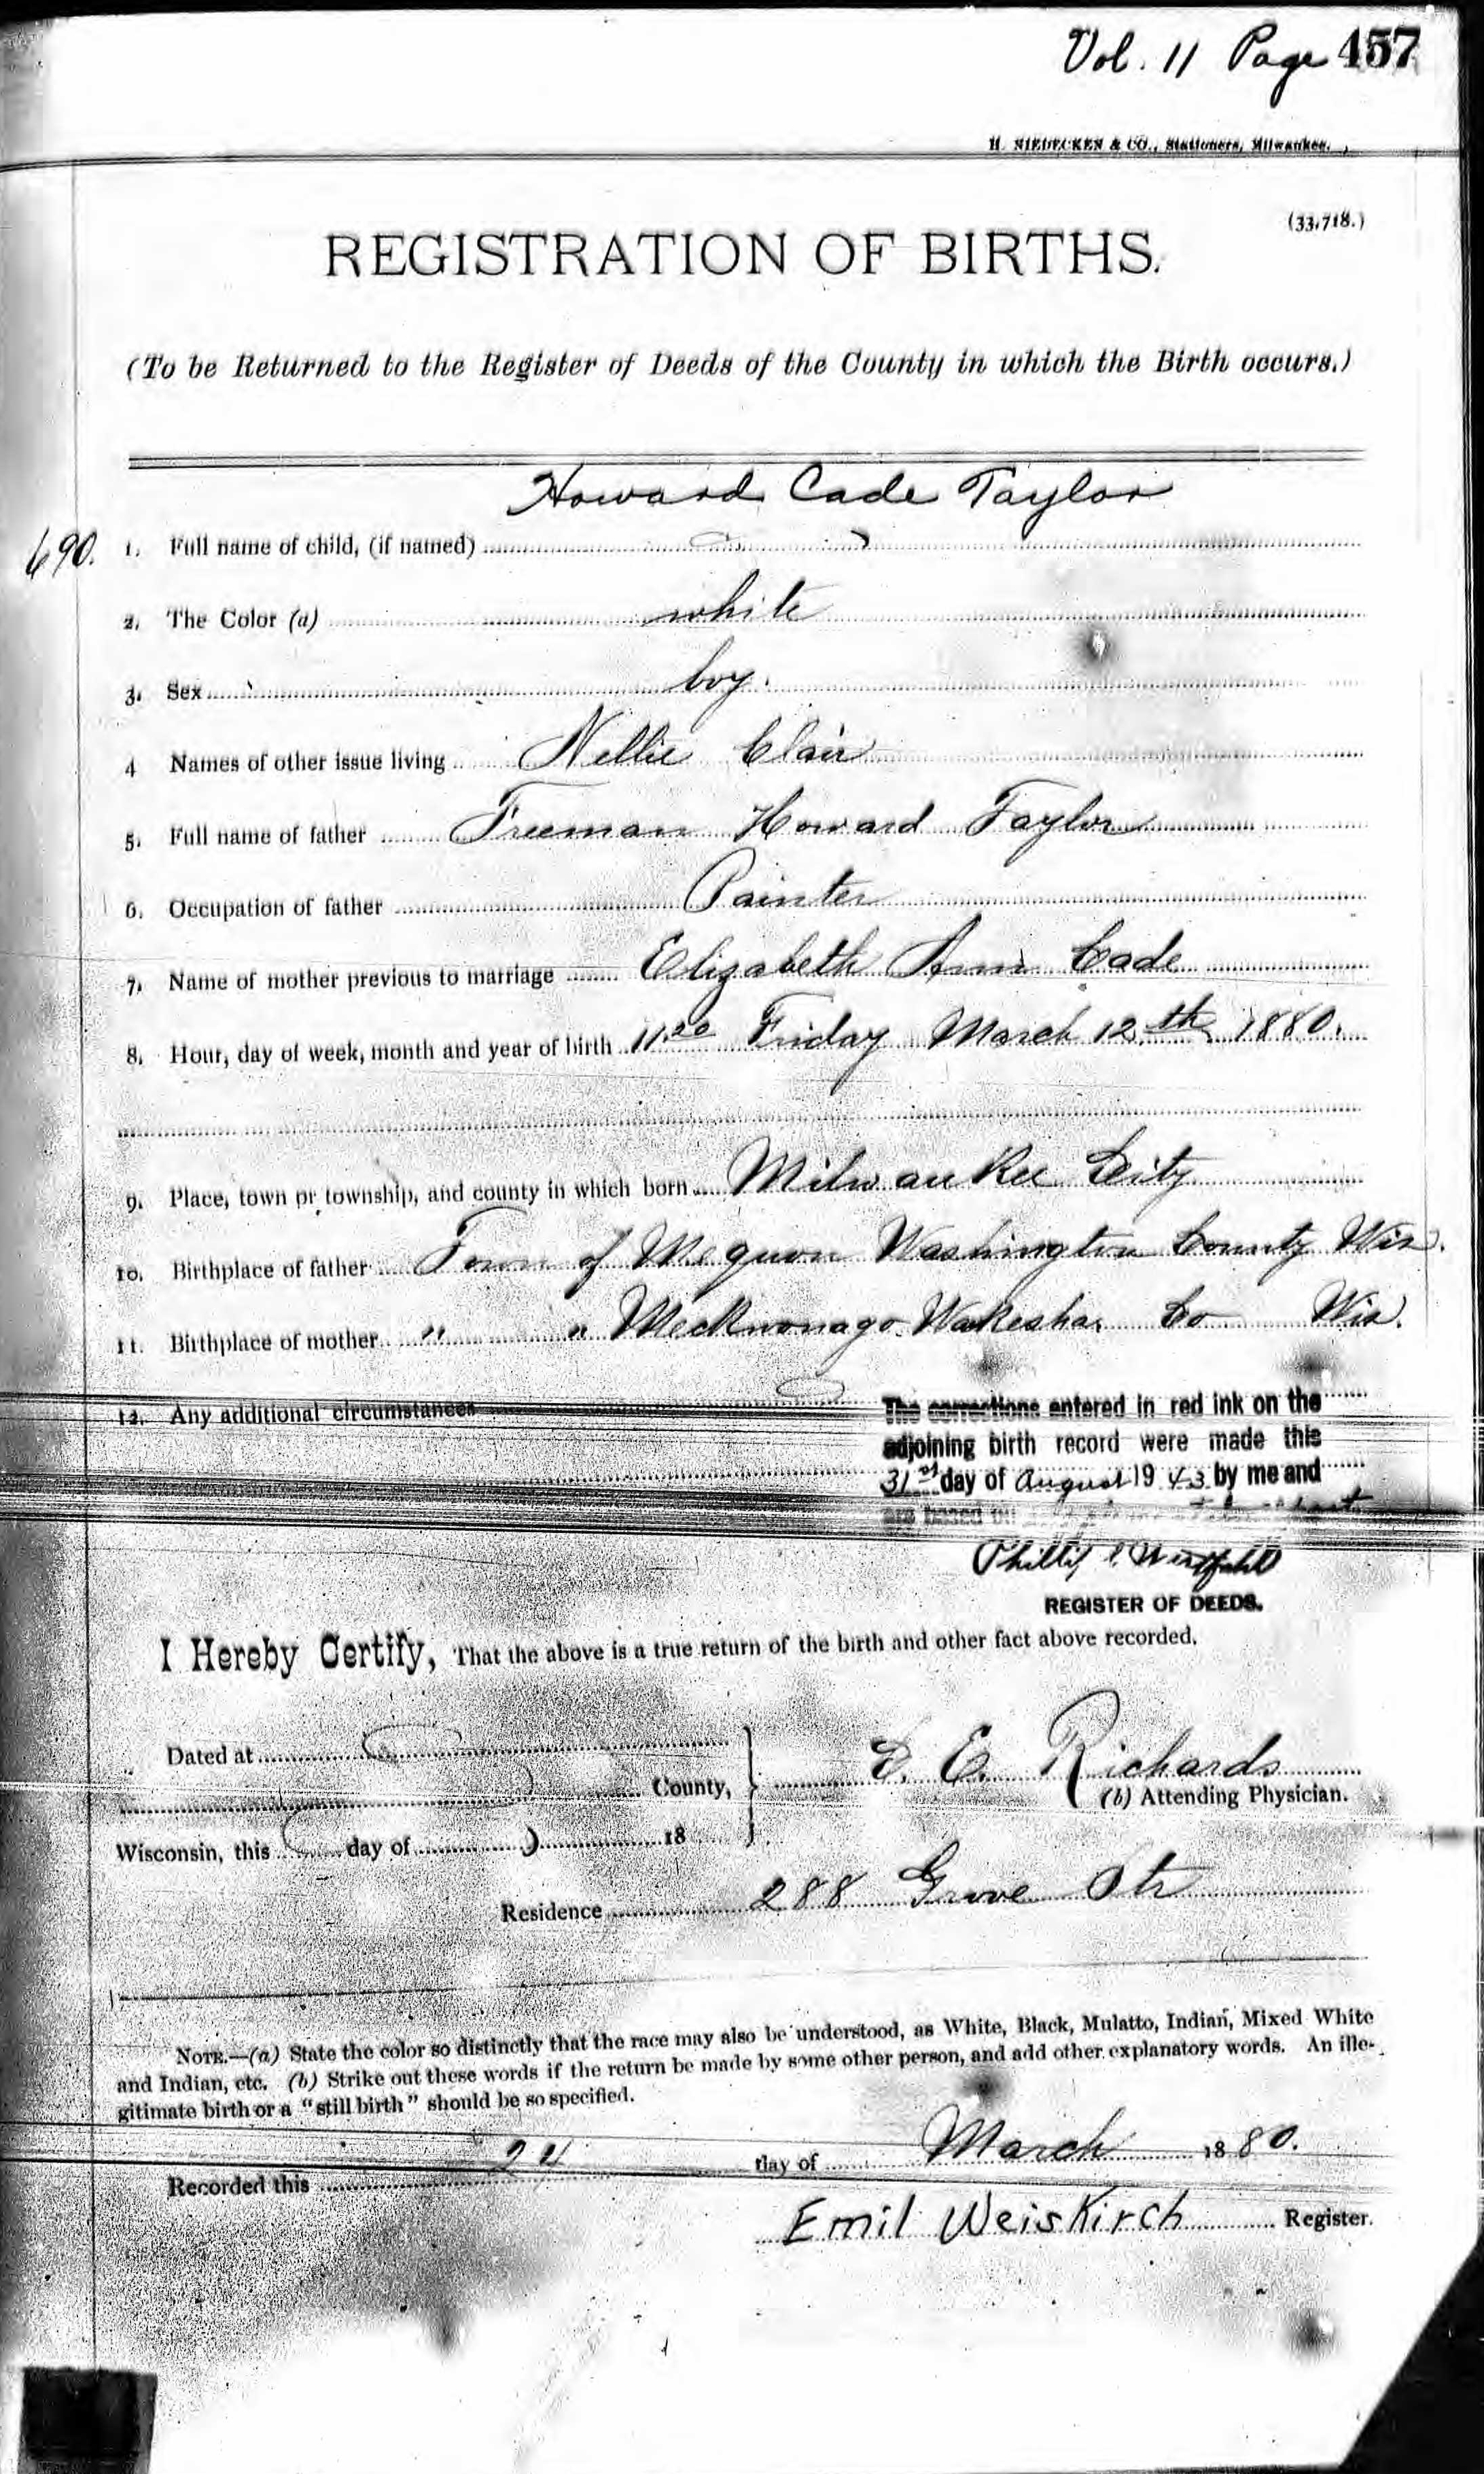 Vol. 11 Page 457
H. NIEDECKEN & CO., Stationers, Milwaukee.
(33,718.)
REGISTRATION OF BIRTHS.
(To be Returned to the Register of Deeds of the County in which the Birth occurs.)
Howard Cade Taylor
690. 1. Full name of child, (if named)
2. The Color (a) white
3. Sex boy.
4 Names of other issue living Nellie Clair
5. Full name of father Freeman Howard Taylor
6. Occupation of father Painter
7. Name of mother previous to marriage Elizabeth Ann Cade
8. Hour, day of week, month and year of birth 11.20 Friday March 12th 1880.
9. Place, town or township, and county in which born Milwaukee City
10. Birthplace of father Town of Mequon Washington County Wis.
11. Birthplace of mother " " Meckwonago Wakesha Co Wis.
12. Any additional circumstances
The corrections entered in red ink on the
adjoining birth record were made this
31st day of August 1943 by me and
are based on
Phillip
REGISTER OF DEEDS.
I Hereby Certify, That the above is a true return of the birth and other fact above recorded.
Dated at
County,
D. E. Richards
(b) Attending Physician.
Wisconsin, this day of 18
Residence 288 Grove Str
NOTE.—(a) State the color so distinctly that the race may also be understood, as White, Black, Mulatto, Indian, Mixed White
and Indian, etc. (b) Strike out these words if the return be made by some other person, and add other explanatory words. An ille-
gitimate birth or a "still birth" should be so specified.
Recorded this 24 day of March 1880.
Emil Weiskirch Register.